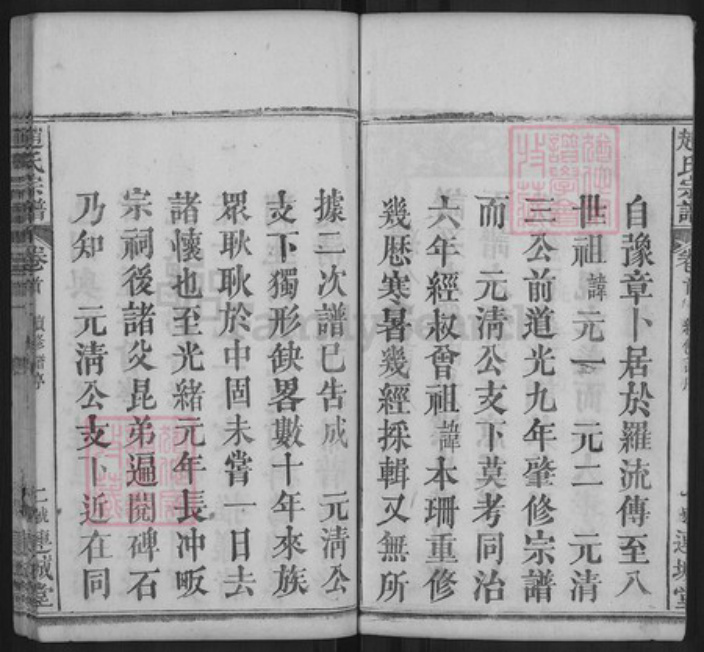 趙氏宗譜 卷首
連城堂
自豫章卜居於羅流傳至八
世祖諱元一 元二 元清
三公前道光九年肇修宗譜
而 元清公支下莫考同治
六年經叔曾祖諱本珊重修
幾歷寒暑幾經採輯又無所
據二次譜已告成 元清公
支下獨形缺畧數十年來族
眾耿耿於中固未嘗一日去
諸懷也至光緒元年長冲畈
宗祠後諸父昆弟遍閱碑石
乃知 元清公支卜近在同
趙氏宗譜 卷首
連城堂
FamilySearch